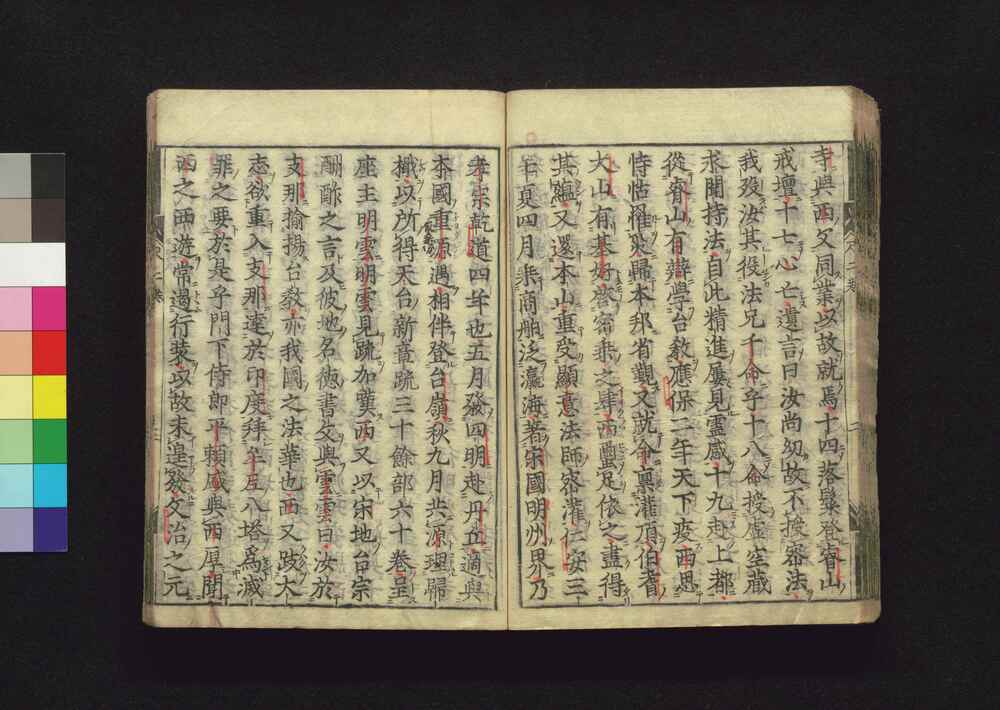 寺與西父同業以故就焉十四落髮登睿山
戒壇十七心亡遺言曰汝尚幼故不授密法
我歿汝其役法兄千命乎十八命授虛空藏
求聞持法自此精進屢見靈感十九赴上都
從睿山有辯學台教應保二年天下疫西思
恃怙罹災歸本邦省觀又就命稟灌頂伯耆
大山有基好密乘之肆西蠒足依之盡得
其蘊又還本山重受顯意法師密灌仁安三
年夏四月乘商舶泛瀛海著宋國明州界乃
孝宗乾道四年也五月發四明赴丹丘適與
本國重源遇相伴登台嶺秋九月共源理歸
檝以所得天台新章疏三十餘部六十卷呈
座主明雲明雲見疏加嘆西又以宋地台宗
酬酢之言及彼地名德書文與雲雲曰汝於
支那揄揚台教亦我國之法華也西又跂大
志欲重入支那達於印度拜牟尼八塔爲滅
罪之要於是乎門下侍郎平賴盛與西厚聞
西之西遊常遏行裝以故未遑文治之元